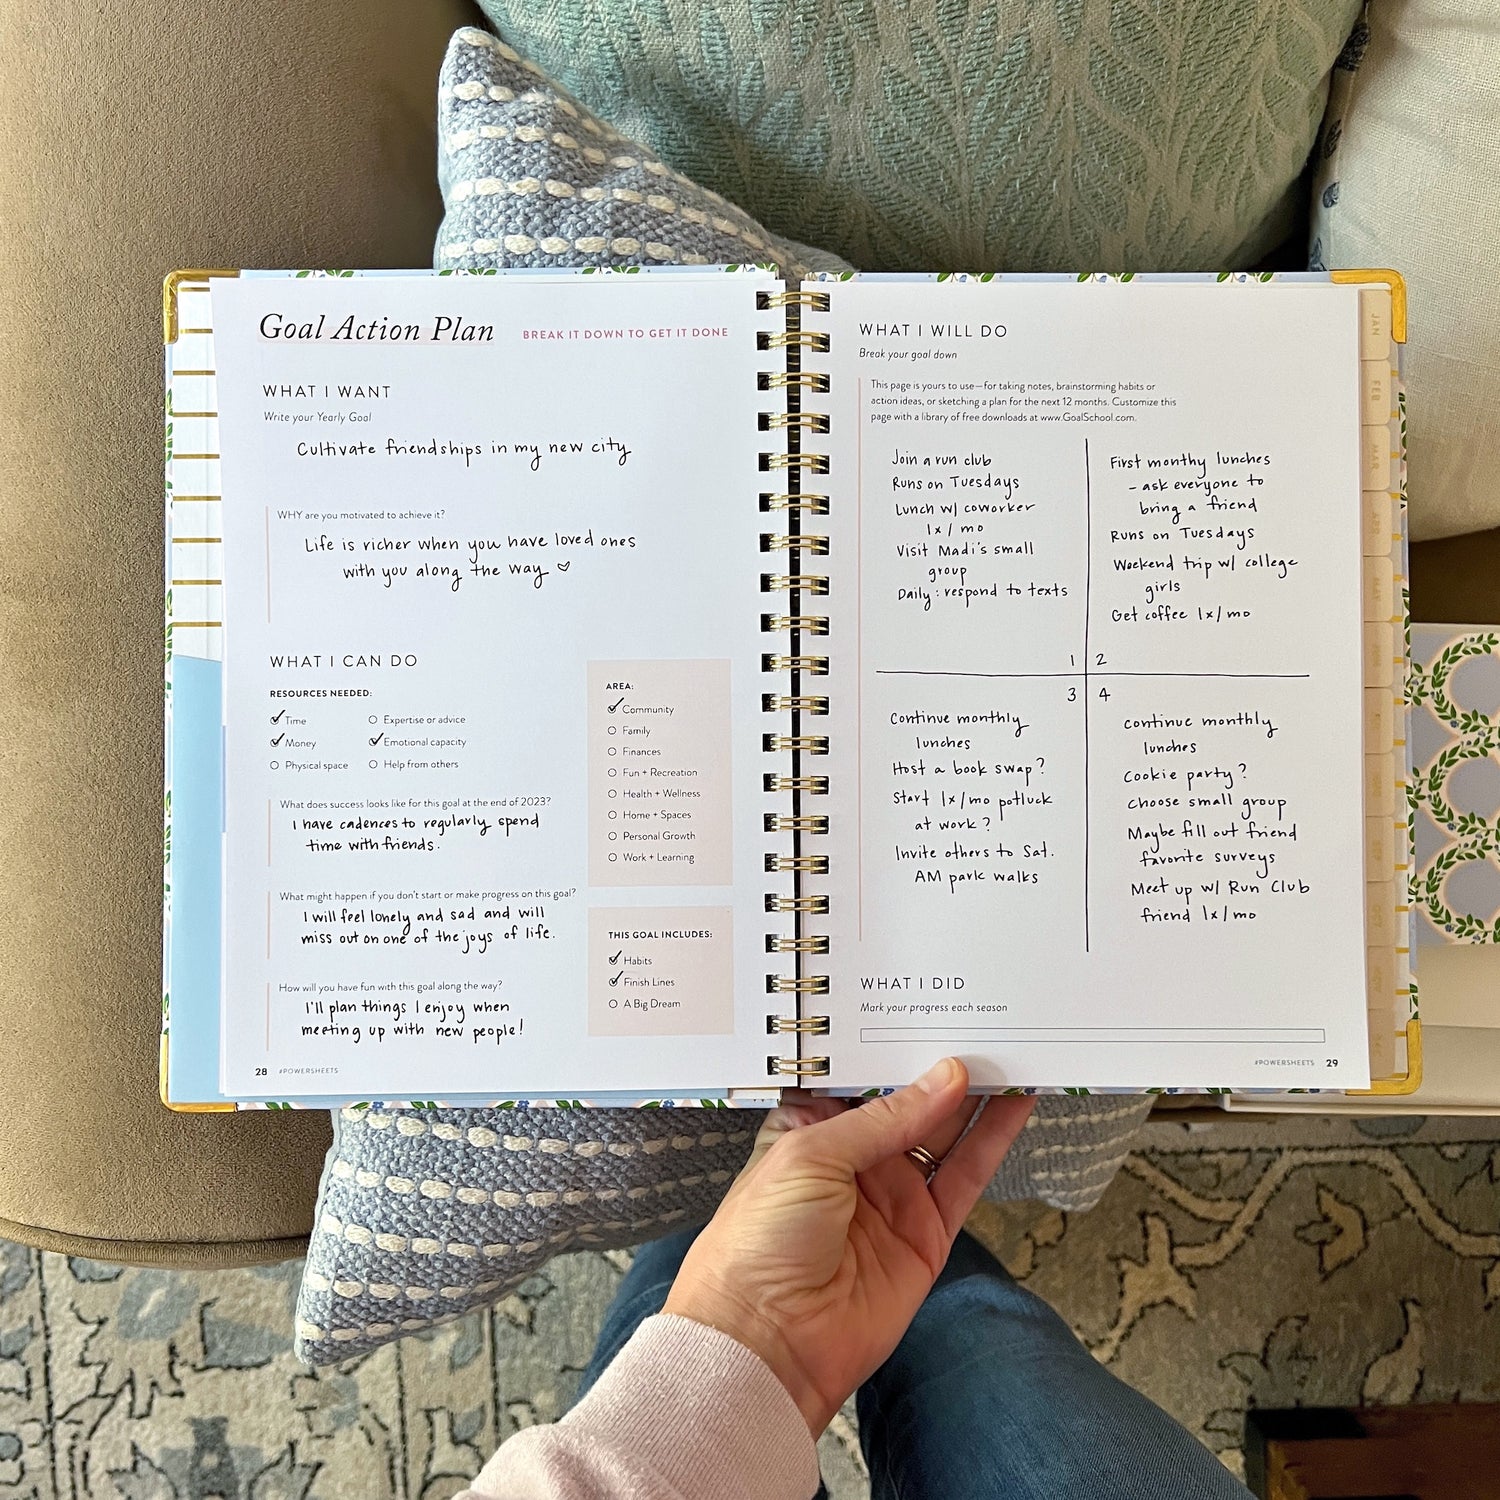 Goal Action Plan
BREAK IT DOWN TO GET IT DONE
WHAT I WANT
Write your Yearly Goal
Cultivate friendships in my new city
WHY are you motivated to achieve it?
Life is richer when you have loved ones
with you along the way
WHAT I CAN DO
RESOURCES NEEDED:
Time
Expertise or advice
Money
Emotional capacity
Physical space
Help from others
What does success looks like for this goal at the end of 2023?
I have cadences to regularly spend
time with friends.
What might happen if you don't start or make progress on this goal?
I will feel lonely and sad and will
miss out on one of the joys of life.
How will you have fun with this goal along the way?
I'll plan things I enjoy when
meeting up with new people!
AREA:
Community
Family
Finances
Fun + Recreation
Health + Wellness
Home + Spaces
Personal Growth
Work + Learning
THIS GOAL INCLUDES:
Habits
Finish Lines
A Big Dream
28 #POWERSHEETS
WHAT I WILL DO
Break your goal down
This page is yours to use—for taking notes, brainstorming habits or
action ideas, or sketching a plan for the next 12 months. Customize this
page with a library of free downloads at www.GoalSchool.com.
Join a run club
Runs on Tuesdays
Lunch w/ coworker
1x/mo
Visit Madi's small
group
Daily: respond to texts
1
First monthy lunches
- ask everyone to
bring a friend
Runs on Tuesdays
Weekend trip w/ college
girls
Get coffee 1x/mo
2
3
Continue monthly
lunches
Host a book swap?
Start 1x/mo potluck
at work?
Invite others to Sat.
AM park walks
4
continue monthly
lunches
Cookie party?
choose small group
Maybe fill out friend
favorite surveys
Meet up w/ Run Club
friend 1x/mo
WHAT I DID
Mark your progress each season
#POWERSHEETS 29
JAN
FEB
MAR
APR
MAY
OCT
NOV